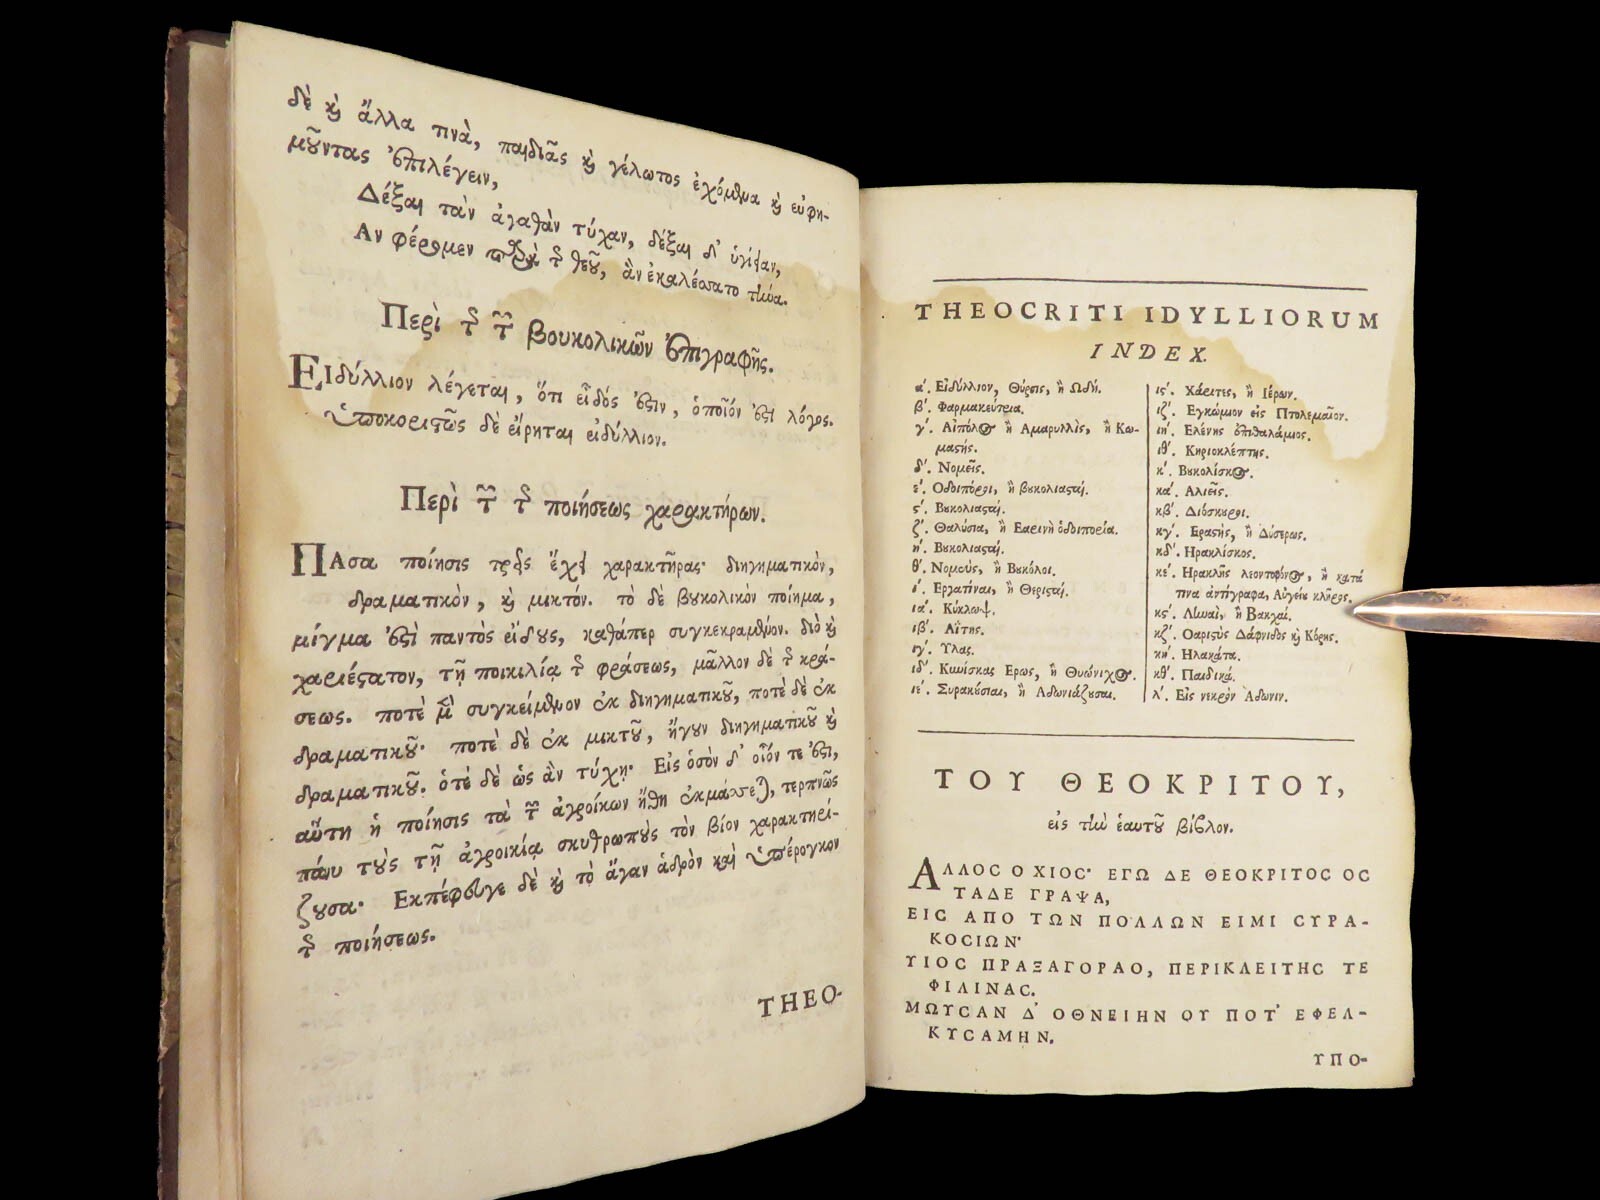 δὲ καὶ ἄλλα τινὰ, παιδιᾶς καὶ γέλωτος ἐχόμενα καὶ εὐφη-
μοῦντας ἐπιλέγειν,
Δέξαι τὰν ἀγαθὰν τύχαν, δέξαι δ' ὑγίειαν,
Αν φέρομεν παρὰ τῆς θεοῦ, ἂν ἐκαλέσατο τήνα.
Περὶ τῆς τῶν βουκολικῶν ἐπιγραφῆς.
ΕΙδύλλιον λέγεται, ὅτι εἶδός ἐστιν, ὁποῖόν ἐστι λόγος.
ὑποκοριστῶς δὲ εἴρηται εἰδύλλιον.
Περὶ τῶν τῆς ποιήσεως χαρακτήρων.
ΠΑσα ποίησις τρεῖς ἔχει χαρακτῆρας· διηγηματικὸν,
δραματικὸν, καὶ μικτόν. τὸ δὲ βουκολικὸν ποίημα,
μίγμα ἐστὶ παντὸς εἴδους, καθάπερ συγκεκραμένον. διὸ καὶ
χαριέστατον, τῇ ποικιλίᾳ τῆς φράσεως, μᾶλλον δὲ τῆς κρά-
σεως. ποτὲ μὲν συγκείμενον ἐκ διηγηματικοῦ, ποτὲ δὲ ἐκ
δραματικοῦ· ποτὲ δὲ ἐκ μικτοῦ, ἤγουν διηγηματικοῦ καὶ
δραματικοῦ. ὁτὲ δὲ ὡς ἂν τύχῃ· Εἰς ὁσὸν δ' οἷόν τε ἐστι,
αὕτη ἡ ποίησις τὰ τῶν ἀγροίκων ἤθη ἐκμάσσεται, τερπνῶς
πάνυ τοὺς τῇ ἀγροικίᾳ σκυθρωποὺς τὸν βίον χαρακτηρί-
ζουσα· Εκπέφευγε δὲ καὶ τὸ ἄγαν ἁδρὸν καὶ ὑπέρογκον
τῆς ποιήσεως.
THEO-
THEOCRITI IDYLLIORUM
INDEX.
α'. Εἰδύλλιον, Θύρσις, ἢ Ωδή.
β'. Φαρμακεύτρια.
γ'. Αἰπόλος ἢ Αμαρυλλὶς, ἢ Κω-
μαστής.
δ'. Νομεῖς.
ε'. Οδοιπόροι, ἢ βουκολιασταί.
ς'. Βουκολιασταί.
ζ'. Θαλύσια, ἢ Εαρινὴ ὁδοιπορία.
η'. Βουκολιασταί.
θ'. Νομεὺς, ἢ Βουκόλοι.
ι'. Εργατίναι, ἢ Θερισταί.
ια'. Κύκλωψ.
ιβ'. Αΐτης.
ιγ'. Υλας.
ιδ'. Κυνίσκας Ερως, ἢ Θυώνιχος.
ιε'. Συρακούσιαι, ἢ Αδωνιάζουσαι.
ις'. Χάριτες, ἢ Ιέρων.
ιζ'. Εγκώμιον εἰς Πτολεμαῖον.
ιη'. Ελένης ἐπιθαλάμιος.
ιθ'. Κηριοκλέπτης.
κ'. Βουκολίσκος.
κα'. Αλιεῖς.
κβ'. Διόσκουροι.
κγ'. Εραστὴς, ἢ Δύσερως.
κδ'. Ηρακλίσκος.
κε'. Ηρακλῆς λεοντοφόνος, ἢ κατά
τινα ἀντίγραφα, Αὐγείου κλῆρος.
κς'. Λῆναὶ, ἢ Βακχαί.
κζ'. Οαριστὺς Δάφνιδος καὶ Κόρης.
κη'. Ηλακάτα.
κθ'. Παιδικά.
λ'. Εἰς νεκρὸν Αδωνιν.
ΤΟΥ ΘΕΟΚΡΙΤΟΥ,
εἰς τὴν ἑαυτοῦ βίβλον.
ΑΛΛΟC Ο ΧΙΟC· ΕΓΩ ΔΕ ΘΕΟΚΡΙΤΟC ΟC
ΤΑΔΕ ΓΡΑΨΑ,
ΕΙC ΑΠΟ ΤΩΝ ΠΟΛΛΩΝ ΕΙΜΙ CΥΡΑ-
ΚΟCΙΩΝ·
ΥΙΟC ΠΡΑΞΑΓΟΡΑΟ, ΠΕΡΙΚΛΕΙΤΗC ΤΕ
ΦΙΛΙΝΑC.
ΜΩΥCΑΝ Δ' ΟΘΝΕΙΗΝ ΟΥ ΠΟΤ' ΕΦΕΛ-
ΚΥCΑΜΗΝ.
ΥΠΟ-